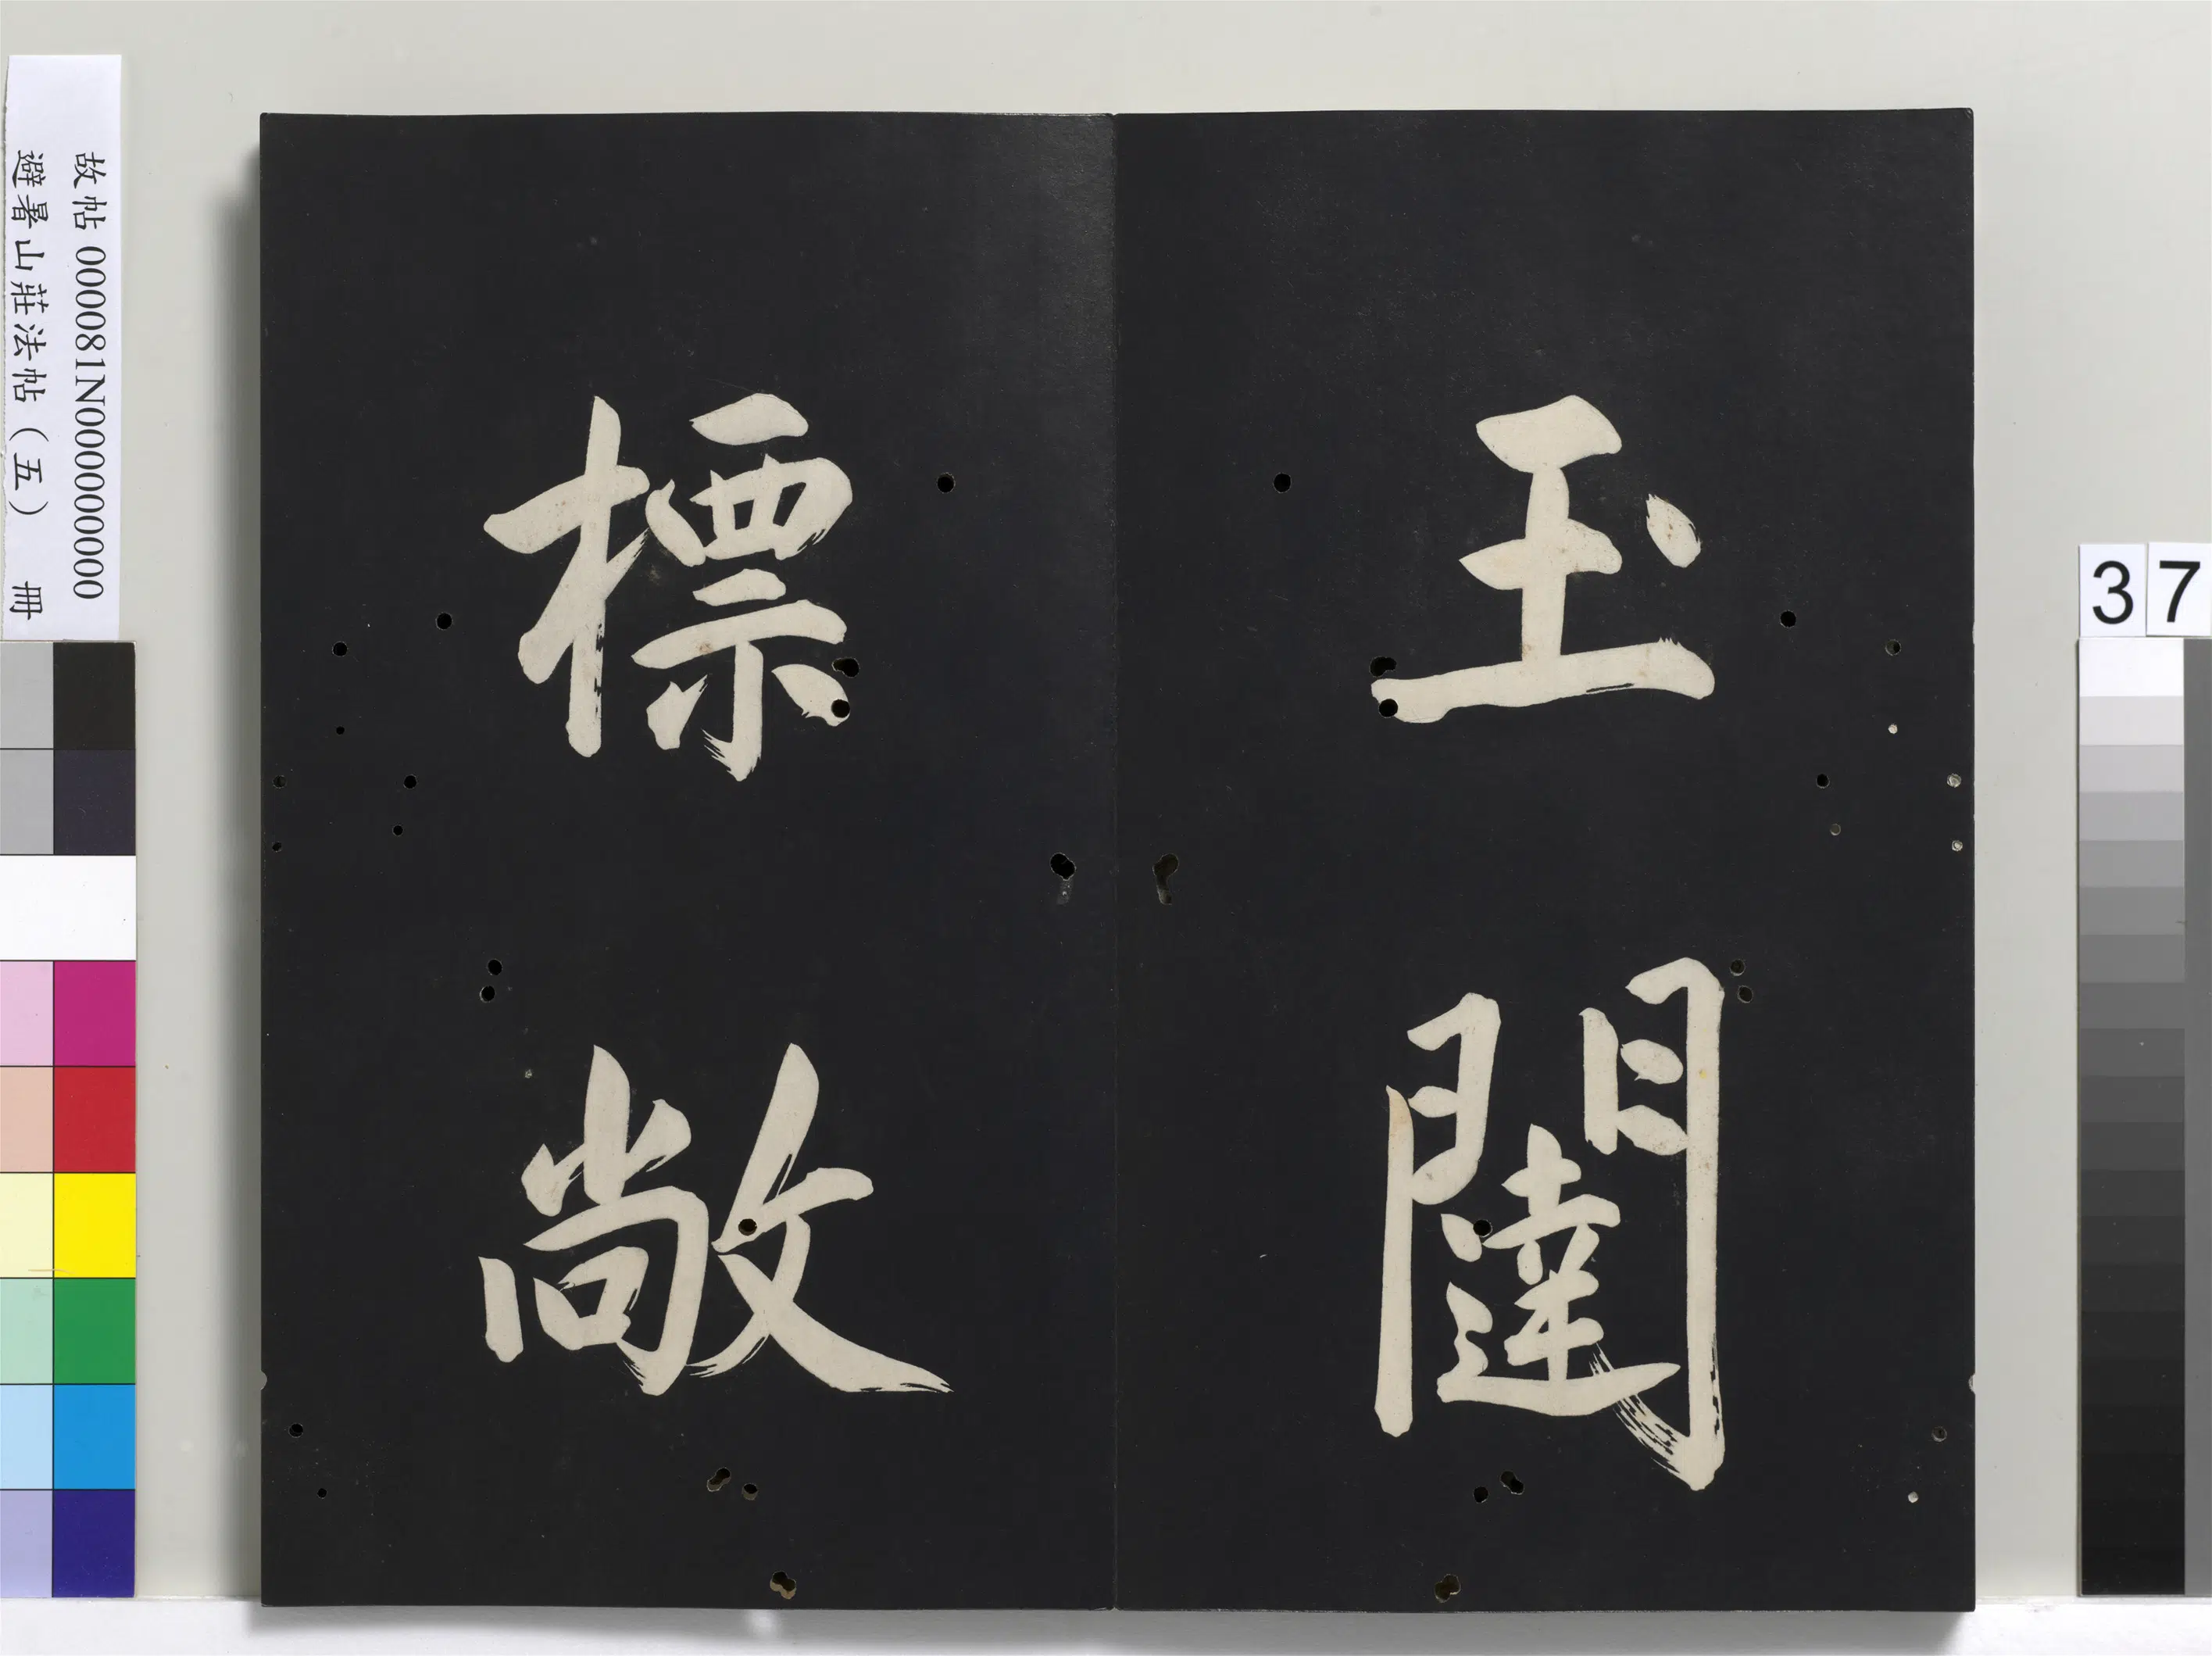 玉闥
標敞
故帖 000081N000000000
避暑山莊法帖（五） 冊
37